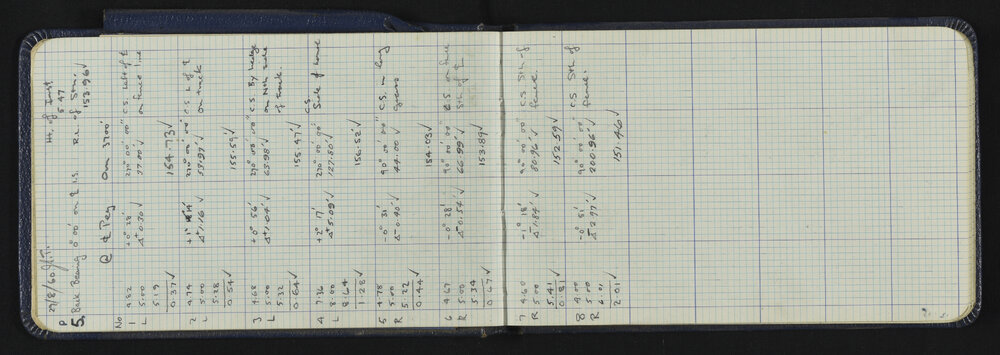 P 27/8/60 Ht. of Inst
5.47
5. Back Bearing 0°00' on ℄ I.S. R.L. of Stn.
153.96 ✓
@ ℄ Peg on 3700'
No
1 4.82 +0° 28' 270° 00' 00" C.S. Left of ℄
L 5.00 Δ+ 0.30 ✓ 37.00 ✓ on fence line
5.19
0.37 ✓ 154.73 ✓
2 4.74 +1° 14' 270° 00' 00" C.S. L of ℄
L 5.00 Δ+ 1.16 ✓ 53.97 ✓ on track
5.28
0.54 ✓ 155.59 ✓
3 4.68 +0° 56' 270° 00' 00" C.S. By hedge
L 5.00 Δ+ 1.04 ✓ 63.98 ✓ on Nth side
5.32 of track.
0.64 ✓ 155.47 ✓
4 7.36 +2° 17' 270° 00' 00" C.S.
L 8.00 Δ+ 5.09 ✓ 127.80 ✓ Side of
8.64
1.28 ✓ 156.52 ✓
5 4.78 -0° 31' 90° 00' 00" C.S. in long
R 5.00 Δ- 0.40 ✓ 44.00 ✓ grass
5.22
0.44 ✓ 154.03 ✓
6 4.67 -0° 28' 90° 00' 00" C.S. on fence
R 5.00 Δ- 0.54 ✓ 66.99 ✓ Sth of ℄
5.34
0.67 ✓ 153.89 ✓
7 4.60 -1° 18' 90° 00' 00" C.S. Sth of
R 5.00 Δ- 1.84 ✓ 80.96 ✓ fence.
5.41
0.81 ✓ 152.59 ✓
8 4.00 -0° 51' 90° 00' 00" C.S. Sth of
R 5.00 Δ- 2.97 ✓ 200.96 ✓ fence.
6.01
2.01 ✓ 151.46 ✓